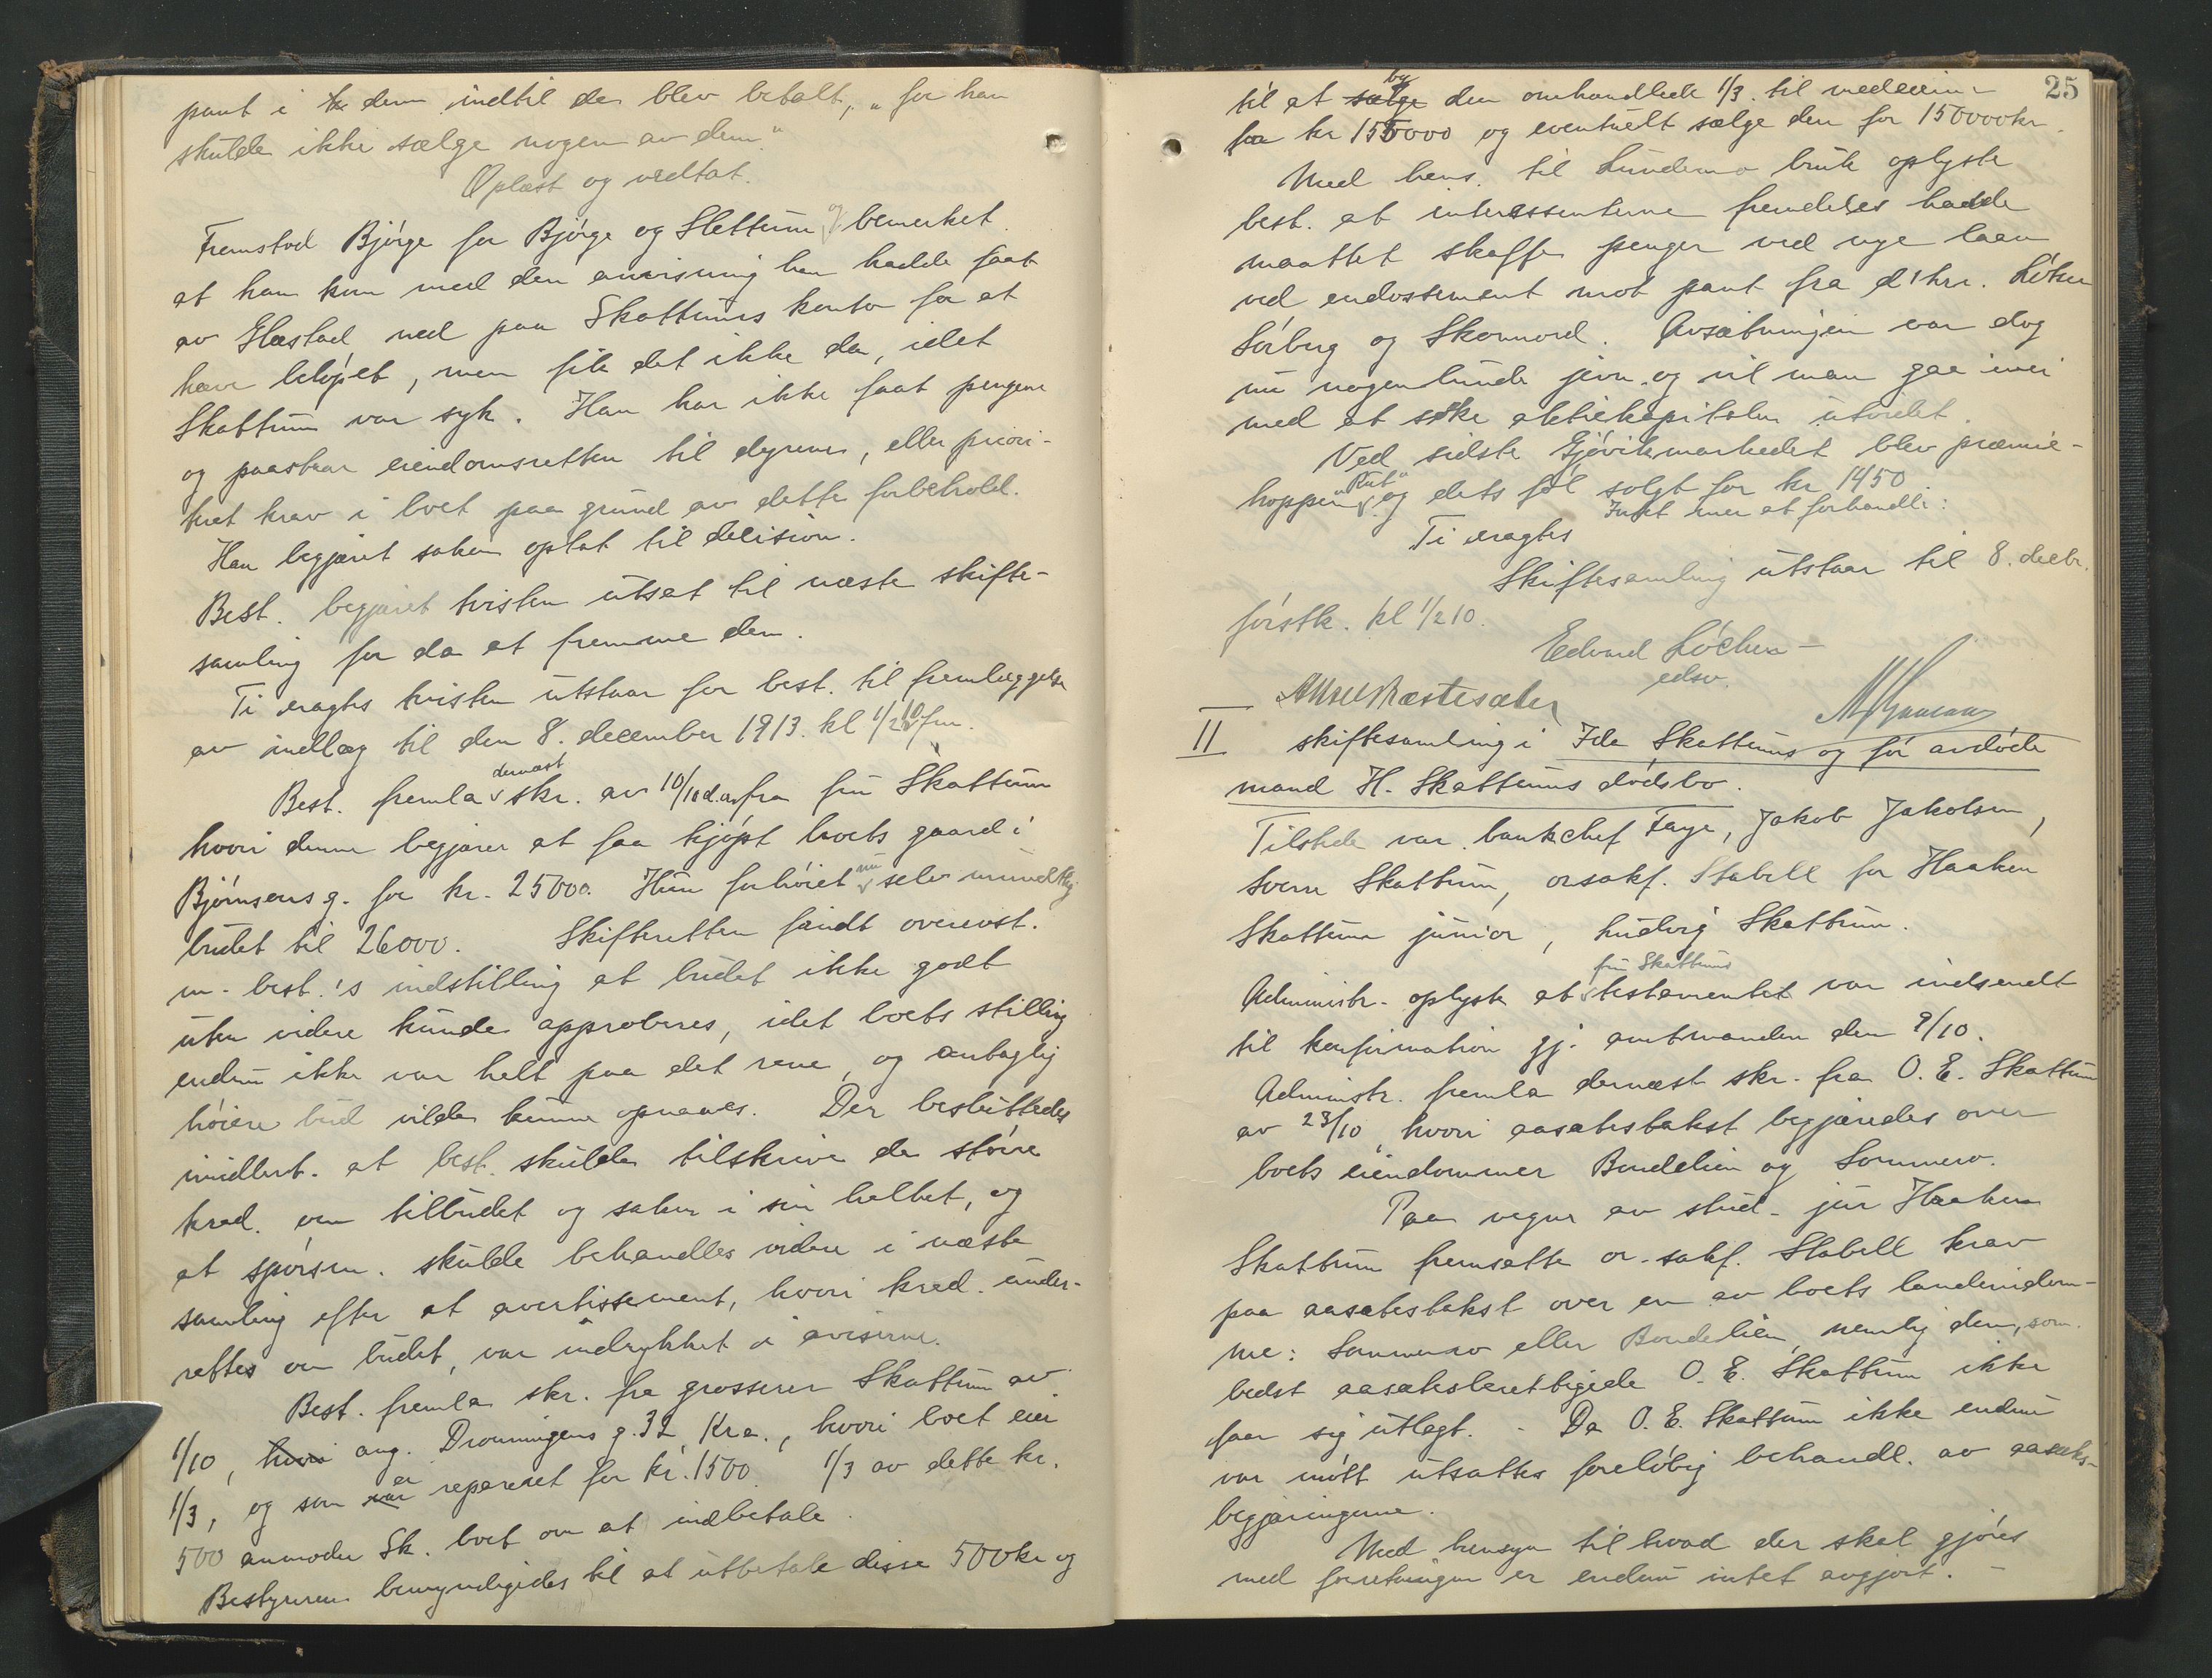 pant i dem indtil de blev betalt, „for han
skulde ikke sælge nogen av dem."
Oplæst og vedtat.
Fremstod Bjørge for Bjørge og Slettum og bemerket
at han kom med den anvisning han hadde faat
av Glæstad ned paa Skattums kontor for at
hæve beløpet, men fik det ikke da, idet
Skattum var syk. Han har ikke faat pengene
og paastaar eiendomsretten til dyrene, eller priori-
tert krav i boet paa grund av dette forbehold.
Han begjæret saken optat til decision.
Best. begjæret tvisten utsat til næste skifte-
samling for da at fremme den.
Ti eragtes tvisten utstaar for best. til fremlæggelse
av indlæg til den 8. december 1913. kl 1/2 10 fm.
Best. fremla dernæst skr. av 10/10 d.a. fra fru Skattum
hvori denne begjærer at faa kjøpt boets gaard i
Bjørnsens g. for kr. 25000. Hun forhøiet nu selv mundtlig
budet til 26000. Skifteretten fandt overenst.
m. best.'s indstilling at budet ikke godt
uten videre kunde approberes, idet boets stilling
endnu ikke var helt paa det rene, og antaglig
høiere bud vilde kunne opnaaes. Der besluttedes
imidlert. at best. skulde tilskrive de større
kred. om tilbudet og saken i sin helhet, og
at spørsm. skulde behandles videre i næste
samling efter at avertissement, hvori kred. under-
rettes om budet, var indrykket i aviserne.
Best. fremla skr. fra grosserer Skattum av
1/10, hvori ang. Dronningens g. 32 Kra., hvori boet eier
1/3, og som var er reparert for kr. 1500 1/3 av dette kr.
500 anmoder Sk. boet om at indbetale.
Bestyreren bemyndigedes til at utbetale disse 500 kr og
25
til at sælge by den omhandlede 1/3 til medeierne
for kr 155000 og eventuelt sælge den for 150000 kr.
Med hens. til Lundemo bruk oplyste
best. at interessenterne fremdeles hadde
maattet skaffe penger ved nye laan
ved endossement mot pant fra d'hrr. Løken
Sørberg og Skonnord. Avsætningen var dog
nu nogenlunde jevn, og vil man gaa ivei
med at søke aktiekapitalen utvidet.
Ved sidste Gjøvikmarkedet blev præmie-
hoppen „Rut" og dets føl solgt for kr 1450
Intet mer at forhandle:
Ti eragtes
Skiftesamling utstaar til 8. decbr.
førstk. kl 1/2 10.
Edvard Løchen
edsv.
II skiftesamling i Ida Skattums og før avdøde
mand H. Skattums dødsbo.
Tilstede var bankchef Faye, Jakob Jakobsen,
Sverre Skattum, orsakf. Stabell for Haaken
Skattum junior, Ludvig Skattum.
Administr. oplyste at fru Skattums testamentet var indsendt
til konfirmation gj. amtmanden den 9/10.
Administr. fremla dernæst skr. fra O. E. Skattum
av 23/10, hvori aasætestakst begjæredes over
boets eiendommer Bondelien og Sommero.
Paa vegne av stud. jur Haaken
Skattum fremsatte or.sakf. Stabell krav
paa aasætestakst over en av boets landeiendom-
me: Sommero eller Bondelien, nemlig den, som
bedst aasætesberettigede O. E. Skattum ikke
faar sig utlagt. - Da O. E. Skattum ikke endnu
var møtt utsattes foreløbig behandl. av aasætes-
begjæringerne.
Med hensyn til hvad der skal gjøres
med forretningen er endnu intet avgjort. -